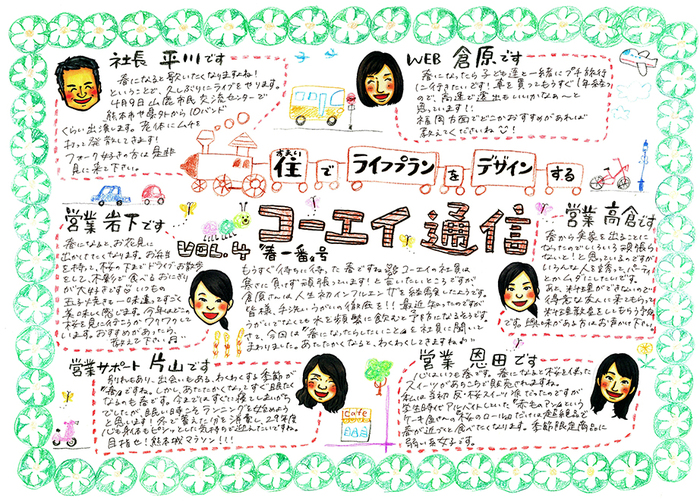 社長 平川です
春になると歌いたくなりますね!
ということで、久しぶりにライブをやります。
4月9日山鹿市民交流センターで
熊本市や県外から10バンド
くらい出演します。
フォーク好きの方は是非
見に来て下さい。
WEB 倉原です
春になったら子ども達と一緒にプチ旅行
に行きたいです!車を買ってもうすぐ1年
ので、高速で遠出もいいかな〜と
思っています!!
福岡方面でどこかおすすめがあれば
教えてくださいね
住で ライフプラン を デザイン する
コーエイ通信
VOL.4 春一番号
営業 岩下です
春になると、お花見に
出かけたくなります。お弁当
を持って、桜の下まで ドライブ お散歩
をして、木影で食べるおにぎり
が大好きです いつもの
玉子焼きも一味違ってすごく
美味しく感じます。今年はどこの
桜を見に行こうかワクワクして
います。おすすめがあったら、
教えて下さい。
もうすぐ待ちに待った春ですね コーエイの社員は
寒さに負けず頑張っています!と言いたいところですが
倉原さんは人生初インフルエンザを経験したようです。
皆様、手洗い、うがいの徹底を!!最近知ったのですが
うがいでなくても水を頻繁に飲むと予防になるそうです。
さて、今回は"春になったらしたいこと"を社員に聞いて
まわりました。あたたかくなると、わくわくしてきますねぇ
営業 高倉です
春から実家を出ることに
なったのでいろいろ頑張らな
いと!と思っているのですが
いろんな人を招いてパーティ
とかムダにしたいです。
あと、料理ができないので
得意な友人に来てもらって
料理教室をしてもらう予定
です。興味がある方はお声がけ下さい。
営業サポート 片山です
別れもあり、出会いもある、わくわくする季節が
春ですね。しかし、あたたかくなるとすぐ眠たく
なるのも春です。今まではすぐに寝てしまいがち
でしたが、眠い時こそランニングを始めよう
と思います!冬で蓄えた分を消費し、29年度
も身体もピシッとした気持ちで迎えたいですね。
目指せ!熊本城マラソン!!!
Cafe
営業 恩田です
春になると桜を使った
スイーツがあちこちで販売されますね。
私は当初反・桜スイーツ派だったのですが
学生時代アルバイトしていた"赤毛のアン"という
ケーキ屋さんの桜のロールケーキだけは超絶品で
春が近づくと食べたくなります。季節限定商品に
弱い恩田です。